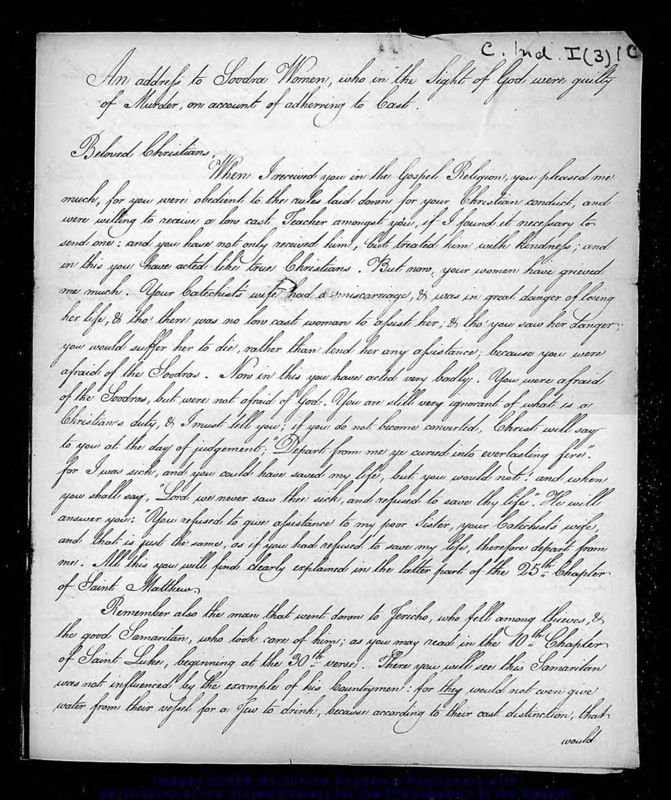 C. Ind. I(3)1C
An address to Soodra Women, who in the Sight of God were guilty
of Murder, on account of adhering to Cast.
Beloved Christians,
When I received you in the Gospel Religion, you pleased me
much, for you were obedient to the rules laid down for your Christian conduct, and
were willing to receive a low cast Teacher amongst you, if I found it necessary to
send one: and you have not only received him, but treated him with kindness; and
in this you have acted like true Christians. But now, your women have grieved
me much. Your Catechist's wife had a miscarriage, & was in great danger of losing
her life, & tho' there was no low cast woman to assist her; & tho' you saw her danger;
you would suffer her to die, rather than lend her any assistance; because you were
afraid of the Soodras. Now in this you have acted very badly. You were afraid
of the Soodras, but were not afraid of God. You are still very ignorant of what is a
Christian's duty, & I must tell you; if you do not become converted, Christ will say
to you at the day of judgement; "Depart from me ye cursed into everlasting fire".
for I was sick, and you could have saved my life, but you would not: and when
you shall say, "Lord we never saw thee sick, and refused to save thy life." He will
answer you: "You refused to give assistance to my poor Sister, your Catechist's wife,
and that is just the same, as if you had refused to save my life, therefore depart from
me. All this you will find clearly explained in the latter part of the 25th Chapter
of Saint Matthew.
Remember also the man that went down to Jericho, who fell among thieves, &
the good Samaritan, who took care of him; as you may read in the 10th Chapter
of Saint Luke, beginning at the 30th verse. There you will see this Samaritan
was not influenced by the example of his Countrymen: for they would not even give
water from their vessel for a Jew to drink, because according to their cast distinction, that
would